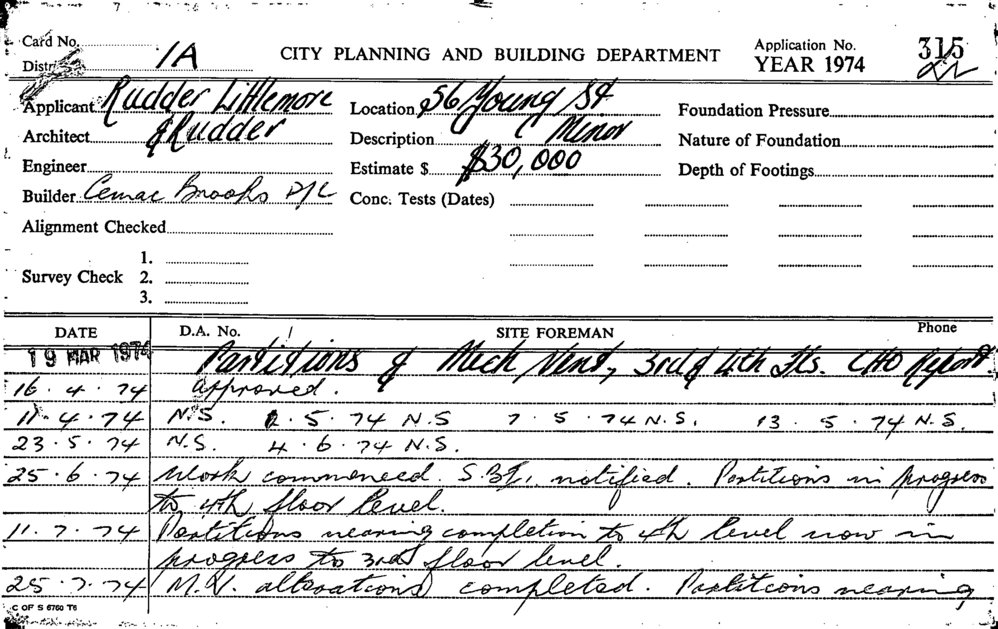 Card No.
Distri
1A
CITY PLANNING AND BUILDING DEPARTMENT
Application No. 315
YEAR 1974
Applicant Rudder Littlemore
Location 56 Young St
Foundation Pressure
Architect & Rudder
Description Minor
Nature of Foundation
Engineer
Estimate $ $30,000
Depth of Footings
Builder Cemac Brooks P/L
Conc. Tests (Dates)
Alignment Checked
Survey Check 1.
2.
3.
DATE D.A. No. / SITE FOREMAN Phone
19 MAR 1974 Partitions & Mech Vent, 3rd & 4th Fls. CHO Report
16.4.74 Approved.
11.4.74 N.S. 2.5.74 N.S 7.5.74 N.S. 13.5.74 N.S.
23.5.74 N.S. 4.6.74 N.S.
25.6.74 Work commenced. S.B.I. notified. Partitions in progress
to 4th floor level.
11.7.74 Partitions nearing completion to 4th level now in
progress to 3rd floor level.
25.7.74 M.V. alterations completed. Partitions nearing
C OF S 6760 T6